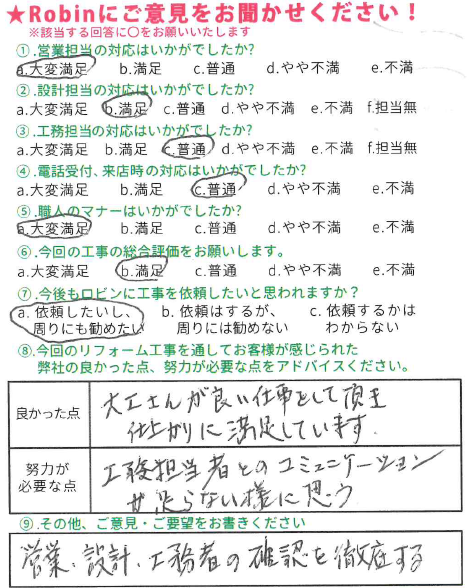 ★Robinにご意見をお聞かせください！
※該当する回答に○をお願いいたします
①.営業担当の対応はいかがでしたか?
a.大変満足 b.満足 c.普通 d.やや不満 e.不満
②.設計担当の対応はいかがでしたか?
a.大変満足 b.満足 c.普通 d.やや不満 e.不満 f.担当無
③.工務担当の対応はいかがでしたか?
a.大変満足 b.満足 c.普通 d.やや不満 e.不満 f.担当無
④.電話受付、来店時の対応はいかがでしたか?
a.大変満足 b.満足 c.普通 d.やや不満 e.不満
⑤.職人のマナーはいかがでしたか?
a.大変満足 b.満足 c.普通 d.やや不満 e.不満
⑥.今回の工事の総合評価をお願いします。
a.大変満足 b.満足 c.普通 d.やや不満 e.不満
⑦.今後もロビンに工事を依頼したいと思われますか？
a. 依頼したいし、 b. 依頼はするが、 c. 依頼するかは
周りにも勧めたい 周りには勧めない わからない
⑧.今回のリフォーム工事を通してお客様が感じられた
弊社の良かった点、努力が必要な点をアドバイスください。
良かった点
大工さんが良い仕事をして頂き
仕上がりに満足しています.
努力が
必要な点
工務担当者とのコミュニケーション
が足らない様に思う
⑨.その他、ご意見・ご要望をお書きください
営業、設計、工務者の確認を徹底する